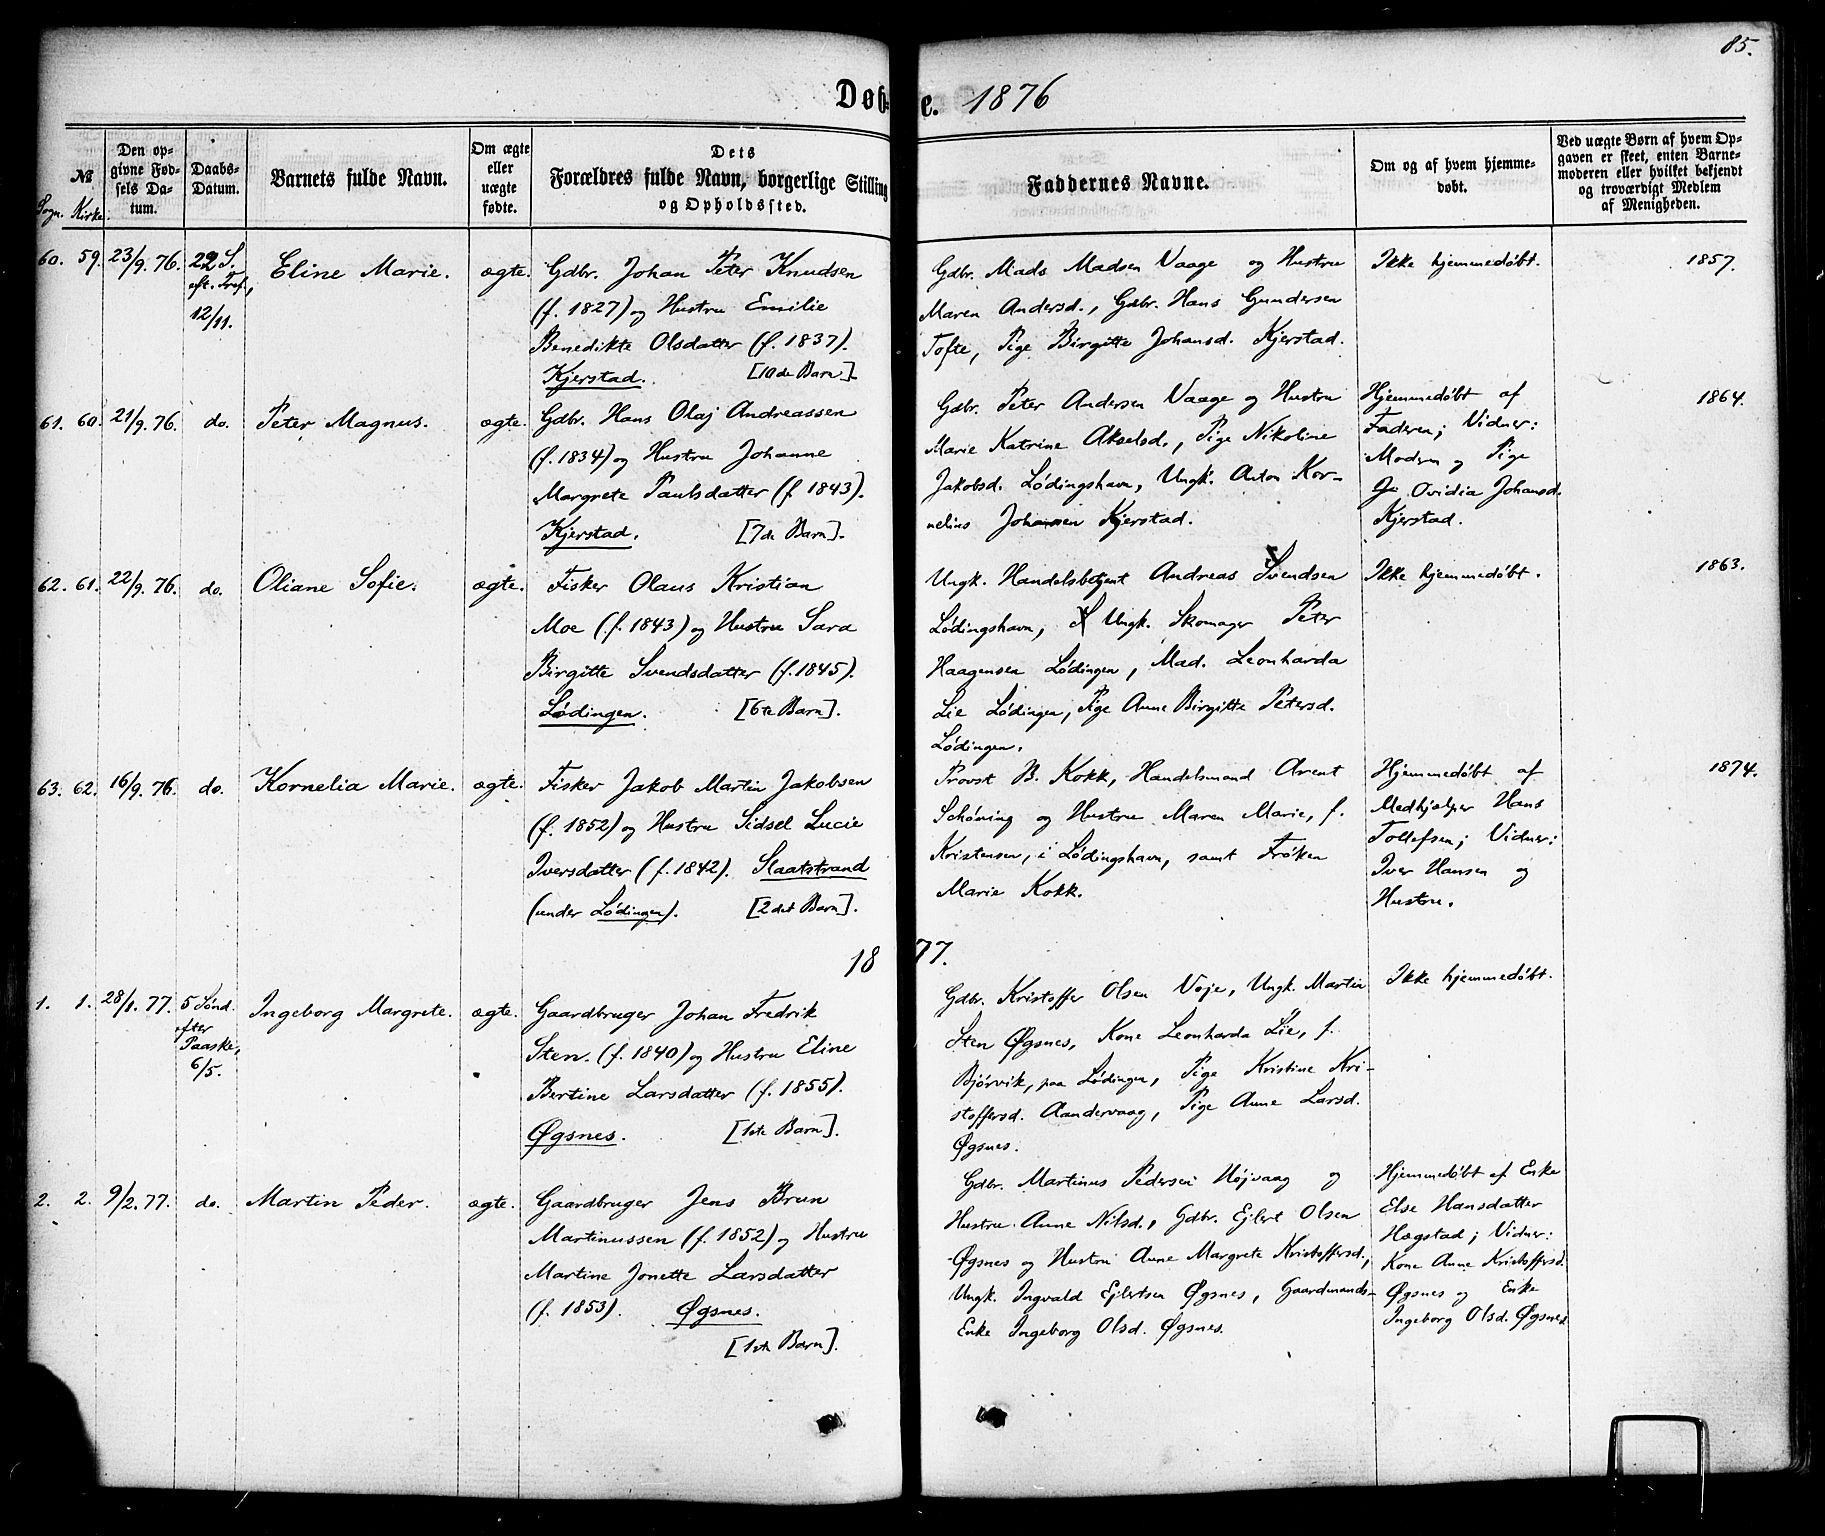 85.
Døb-
e. 1876
№
Sogn. Kirke.
Den op-
givne Fød-
sels Da-
tum.
Daabs-
Datum.
Barnets fulde Navn.
Om ægte
eller
uægte
fødte.
Dets
Forældres fulde Navn, borgerlige Stilling
og Opholdssted.
Faddernes Navne.
Om og af hvem hjemme-
døbt.
Ved uægte Børn af hvem Op-
gaven er skeet, enten Barne-
moderen eller hvilket bekjendt
og troværdigt Medlem
af Menigheden.
60. 59. 23/9. 76.
22 S.
eft. Tref.,
12/11.
Eline Marie.
ægte.
Gdbr. Johan Peter Knudsen
(f. 1827) og Hustru Emilie
Benedikte Olsdatter (f. 1837).
Kjerstad. [10de Barn].
Gdbr. Mads Madsen Vaage og Hustru
Maren Andersd., Gdbr. Hans Gundersen
Tofte, Pige Birgitte Johansd. Kjerstad.
Ikke hjemmedøbt.
1857.
61. 60. 21/9. 76.
do.
Peter Magnus.
ægte.
Gdbr. Hans Olaj Andreassen
(f. 1834) og Hustru Johanne
Margrete Paulsdatter (f 1843).
Kjerstad. [7de Barn].
Gdbr. Peter Andersen Vaage og Hustru
Marie Katrine Akselsd., Pige Nikoline
Jakobsd. Lødingshavn, Ungk. Anton Kor-
nelius Johansen Kjerstad.
Hjemmedøbt af
Faderen; Vidner:
Modren og Pige
Ovidia Johansd.
Kjerstad.
1864.
62. 61. 22/9. 76.
do.
Oliane Sofie.
ægte.
Fisker Olaus Kristian
Moe (f. 1843) og Hustru Sara
Birgitte Svendsdatter (f. 1845).
Lødingen. [6te Barn].
Ungk. Handelsbetjent Andreas Svendsen
Lødingshavn, Ungk. Skomager Peter
Haagensen Lødingen, Mad. Leonharda
Lie Lødingen, Pige Anne Birgitte Petersd.
Lødingen.
Ikke hjemmedøbt.
1863.
63. 62. 16/9. 76.
do.
Kornelia Marie.
ægte.
Fisker Jakob Martin Jakobsen
(f. 1852) og Hustru Sidsel Lucie
Iversdatter (f. 1842). Slaatstrand
(under Lødingen). [2det Barn].
Provst B. Kokk, Handelsmand Arent
Schøning og Hustru Maren Marie, f.
Kristensen, i Lødingshavn, samt Frøken
Marie Kokk.
Hjemmedøbt af
Medhjælper Hans
Tollefsen; Vidner:
Iver Hansen og
Hustru.
1874.
1877.
1. 1. 28/1. 77.
5 Sønd.
efter
Paaske,
6/5.
Ingeborg Margrete.
ægte.
Gaardbruger Johan Fredrik
Sten. (f. 1840) og Hustru Eline
Bertine Larsdatter (f. 1855).
Øgsnes. [1ste Barn].
Gdbr. Kristoffer Olsen Voje, Ungk. Martin
Sten Øgsnes, Kone Leonharda Lie, f.
Bjørvik, paa Lødingen, Pige Kristine Kri-
stoffersd. Aandervaag, Pige Anne Larsd.
Øgsnes.
Ikke hjemmedøbt.
2. 2. 9/2. 77.
do.
Martin Peder.
ægte.
Gaardbruger Jens Brun
Martinussen (f. 1852) og Hustru
Martine Jonette Larsdatter
(f. 1853). Øgsnes.
[1ste Barn].
Gdbr. Martinus Pedersen Højvaag og
Hustru Anne Nilsd., Gdbr. Ejlert Olsen
Øgsnes og Hustru Anne Margrete Kristoffersd.,
Ungk. Ingvald Ejlertsen Øgsnes, Gaardmands-
Enke Ingeborg Olsd. Øgsnes.
Hjemmedøbt af Enke
Else Hansdatter
Hægstad; Vidner:
Kone Anne Kristoffersd.
Øgsnes og Enke
Ingeborg Olsd. Øgsnes.